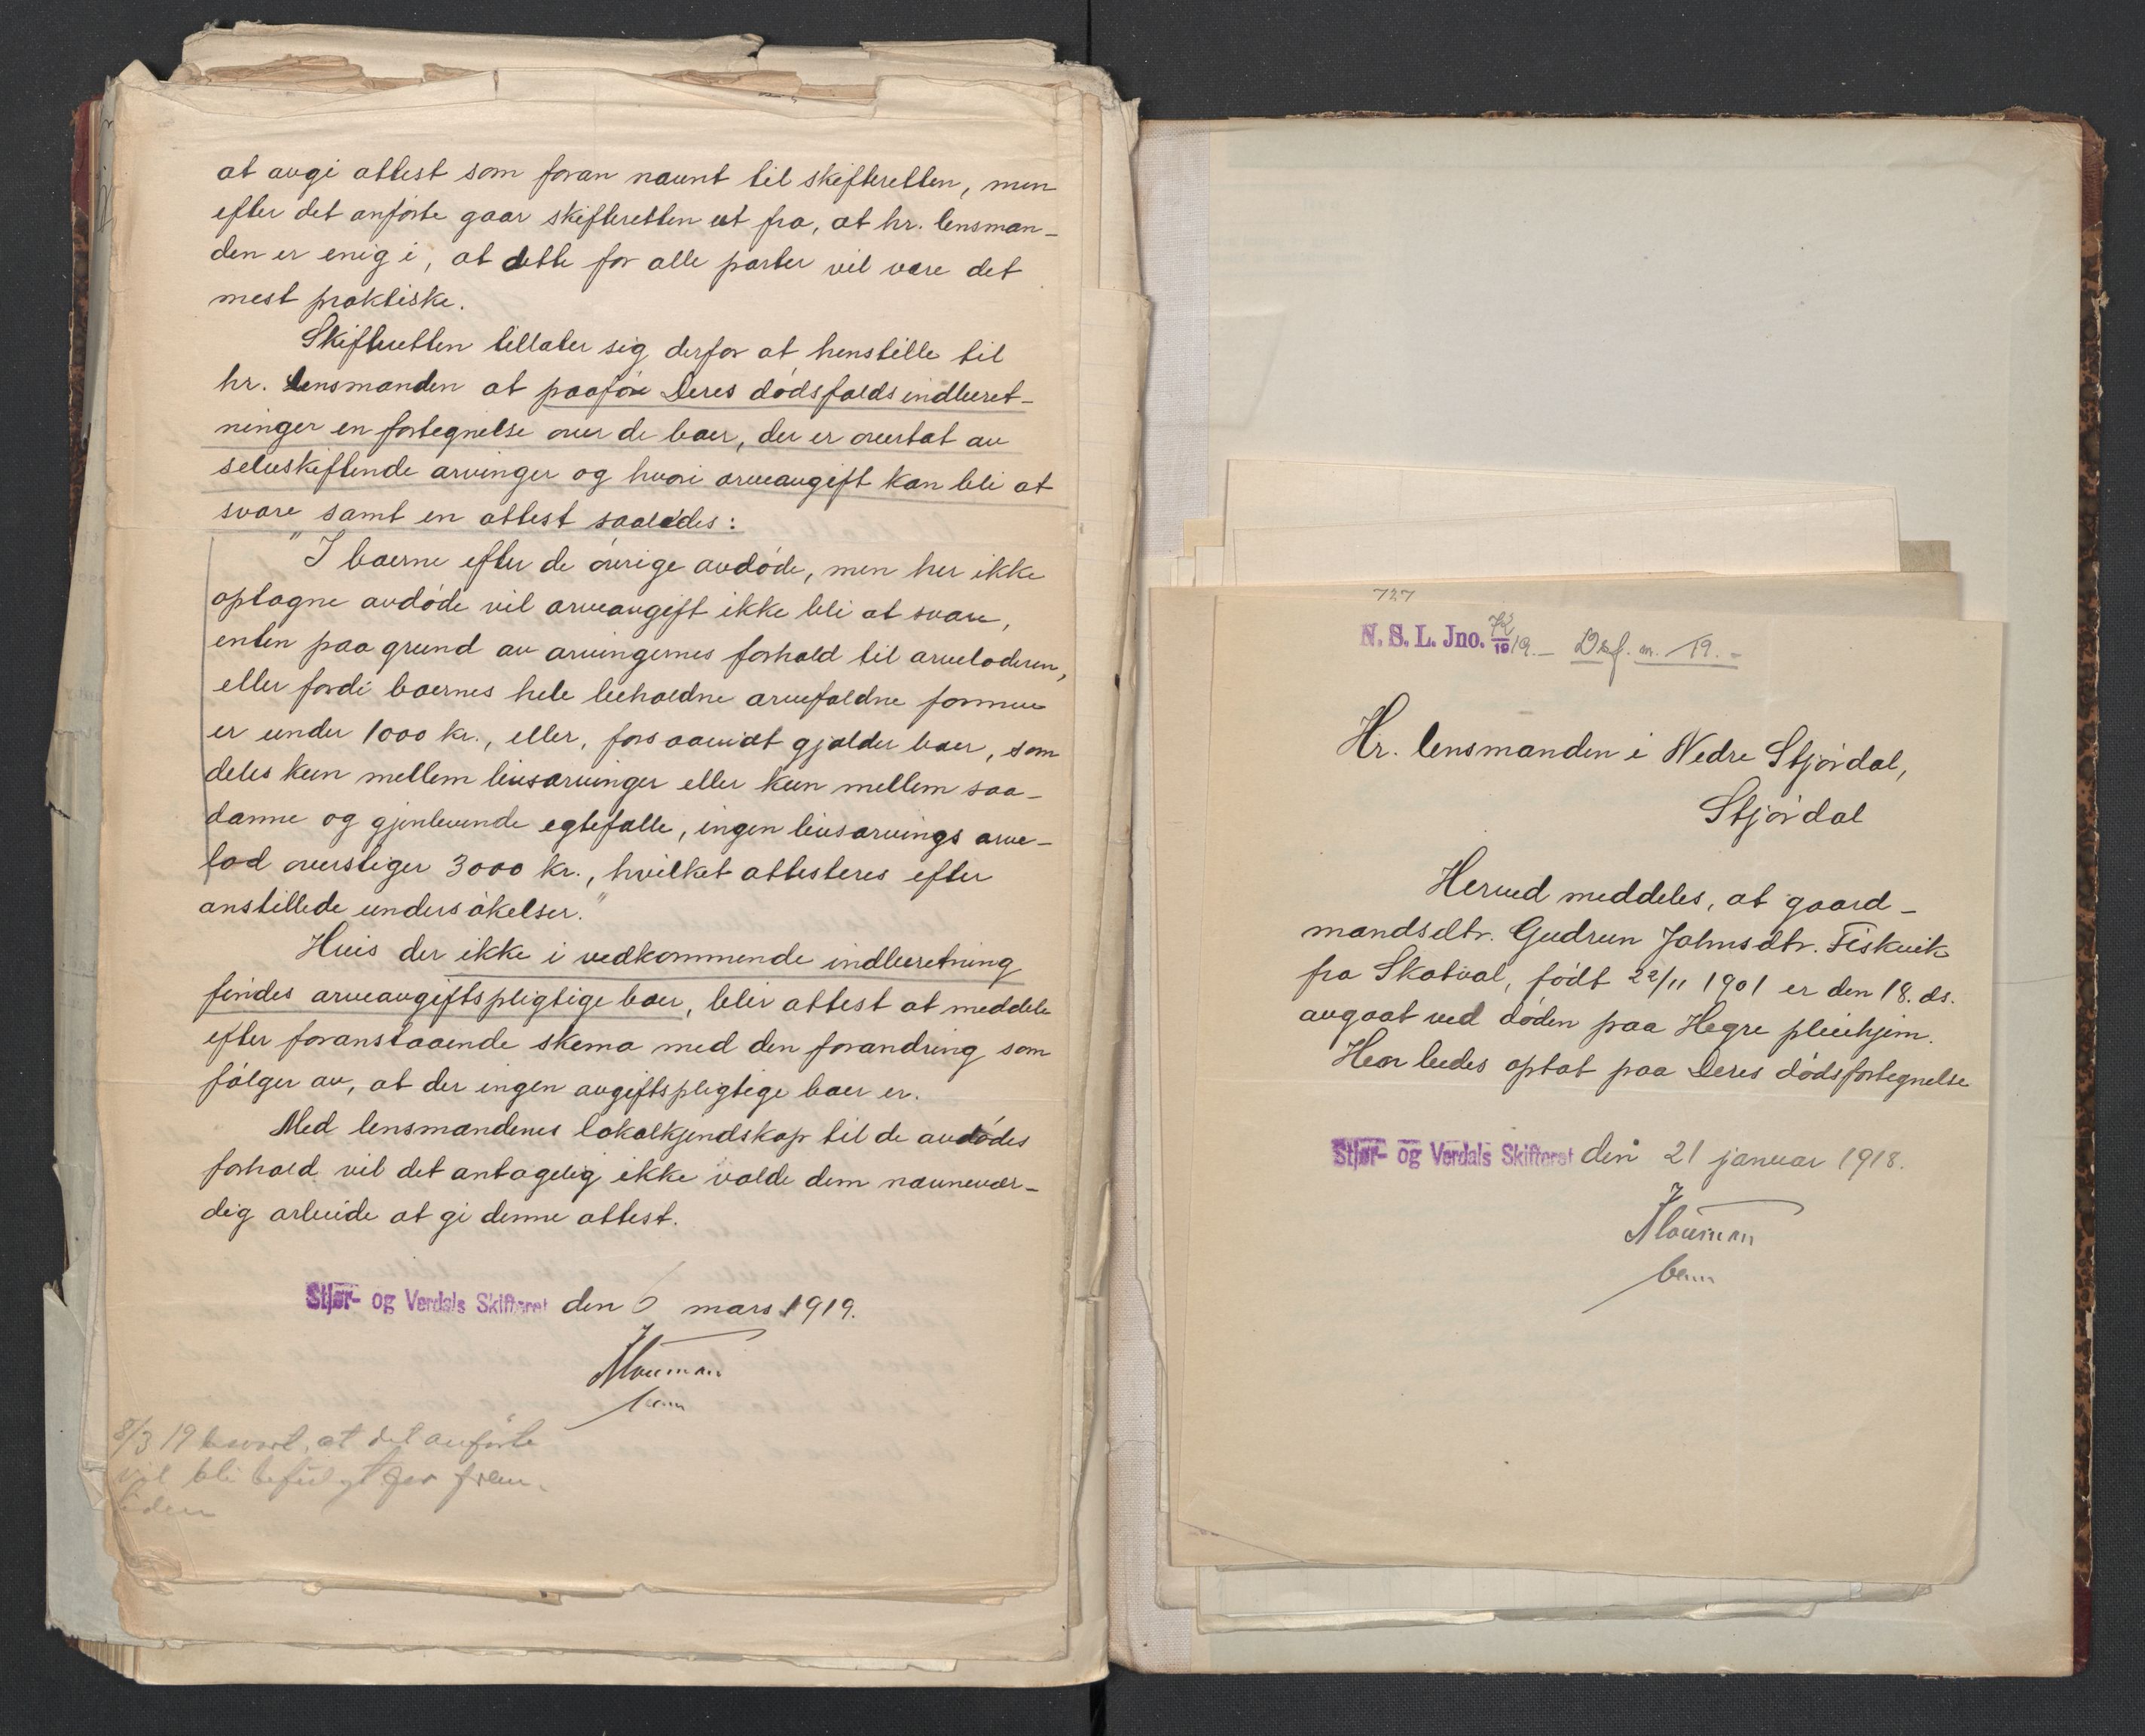 at avgi attest som foran nævnt til skifteretten, men
efter det anførte gaar skifteretten ut fra, at hr. lensman-
den er enig i, at dette for alle parter vil være det
mest praktiske.
Skifteretten tillater sig derfor at henstille til
hr. lensmanden at paaføre Deres dødsfaldsindberet-
ninger en fortegnelse over de boer, der er overtat av
selvskiftende arvinger og hvori arveavgift kan bli at
svare samt en attest saaledes:
"I boerne efter de øvrige avdøde, men her ikke
optagne avdøde vil arveavgift ikke bli at svare,
enten paa grund av arvingernes forhold til arveladeren,
eller fordi boernes hele beholdne arvefaldne formue
er under 1000 kr., eller, forsaavidt gjælder boer, som
deles kun mellem livsarvinger eller kun mellem saa-
danne og gjenlevende egtefælle, ingen livsarvings arve-
lod overstiger 3000 kr., hvilket attesteres efter
anstillede undersøkelser."
Hvis der ikke i vedkommende indberetning
findes arveavgiftspligtige boer, blir attest at meddele
efter foranstaaende skema med den forandring som
følger av, at der ingen avgiftspligtige boer er.
Med lensmandenes lokalkjendskap til de avdødes
forhold vil det antagelig ikke volde dem nævnevær-
dig arbeide at gi denne attest.
Stjør- og Verdals Skifteret den 6 mars 1919.
8/3 19 besvart, at det anførte
vil bli befulgt for frem-
tiden
727
N. S. L. Jno. 72/1919.- Dsf. nr. 19.-
Hr. lensmanden i Nedre Stjørdal,
Stjørdal
Herved meddeles, at gaard-
mandsdtr. Gudrun Johnsdtr. Fiskvik
fra Skatval, født 22/11 1901 er den 18. ds.
avgaat ved døden paa Hegre pleiehjem.
Hun bedes optat paa Deres dødsfortegnelse
Stjør- og Verdals Skifteret den 21 januar 1918.